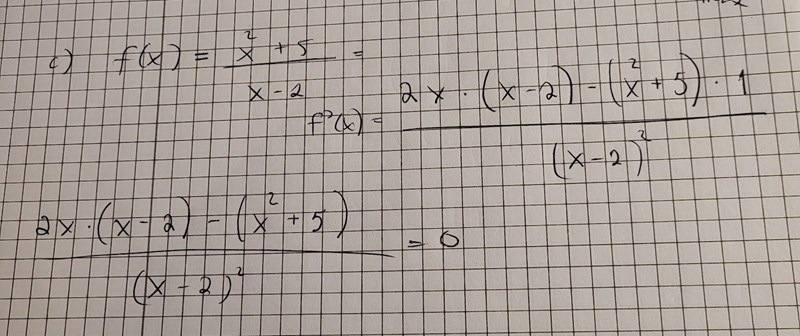 c) f(x) = x² + 5 / x - 2 =
f'(x) = 2x · (x-2) - (x² + 5) · 1 / (x-2)²
2x · (x-2) - (x² + 5) / (x-2)² = 0